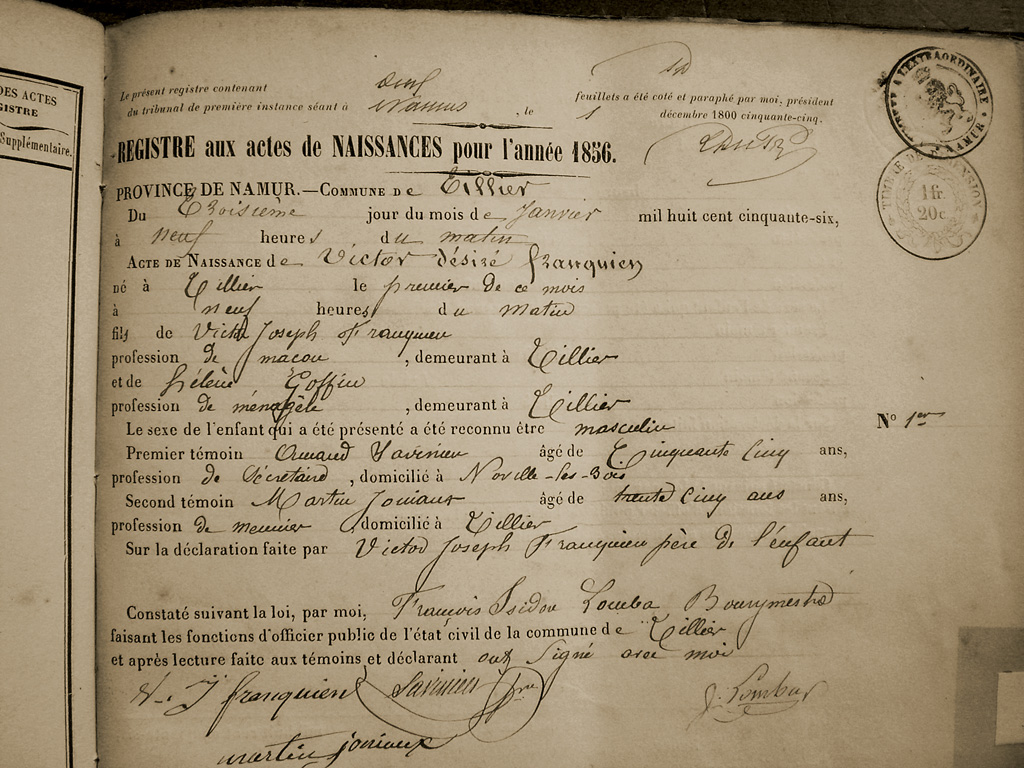 DES ACTES
GISTRE
Supplémentaire.
Le présent registre contenant onze feuillets a été coté et paraphé par moi, président
du tribunal de première instance séant à Namur, le décembre 1800 cinquante-cinq.
REGISTRE aux actes de NAISSANCES pour l'année 1856.
PROVINCE DE NAMUR.—COMMUNE De Tillier
Du Troisième jour du mois de Janvier mil huit cent cinquante-six,
à neuf heures du matin
ACTE DE NAISSANCE de Victor désiré franquien
né à Tillier le premier de ce mois
à neuf heures du matin
fils de Victor Joseph Franquien
profession de macon, demeurant à Tillier
et de hélène Goffin
profession de ménagèle, demeurant à Tillier
Le sexe de l'enfant qui a été présenté a été reconnu être masculin
Premier témoin âgé de Cinquante Cinq ans,
profession de Sécretaire, domicilié à Noville-les-Bois
Second témoin Martin Joniaux âgé de trente Cinq ans ans,
profession de meunier domicilié à Tillier
Sur la déclaration faite par Victor Joseph Franquien père de l'enfant
Constaté suivant la loi, par moi, François Isidor Lomba Bourgmestre
faisant les fonctions d'officier public de l'état civil de la commune de Tillier
et après lecture faite aux témoins et déclarant ont Signé avec moi
V. J franquien Savinien
martin joniaux
N° 1er
EXTRAORDINAIRE NAMUR
TIMBRE DE DIMENSION
1 fr.
20c